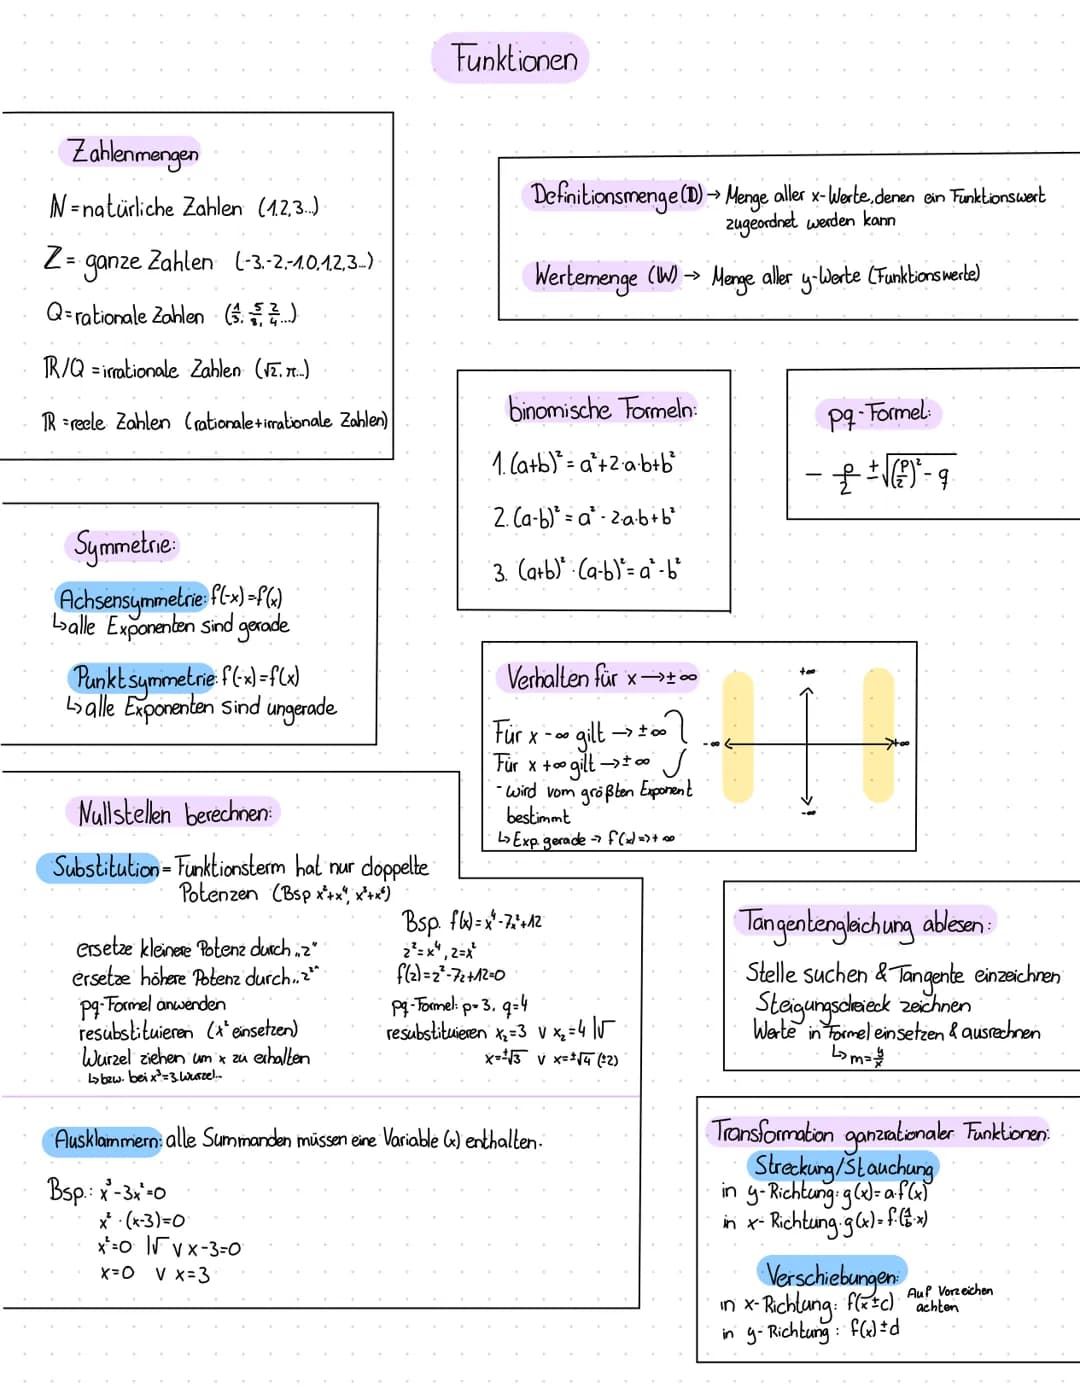 Funktionen
Zahlenmengen
N = natürliche Zahlen (1,2,3...)
Z = ganze Zahlen (-3,-2,-1,0,1,2,3...)
Q = rationale Zahlen (1/3, 5/8, 2/4...)
R/Q = irrationale Zahlen (√2, π...)
R = reele Zahlen (rationale+irrationale Zahlen)
Definitionsmenge (D) → Menge aller x-Werte, denen ein Funktionswert
zugeordnet werden kann
Wertemenge (W) → Menge aller y-Werte (Funktionswerte)
binomische Formeln:
1. (a+b)² = a²+2·a·b+b²
2. (a-b)² = a² - 2·a·b+b²
3. (a+b)² · (a-b)² = a²-b²
pq-Formel:
- p/2 ± √(p/2)² - q
Symmetrie:
Achsensymmetrie: f(-x)=f(x)
↳ alle Exponenten sind gerade
Punktsymmetrie: f(-x)=f(x)
↳ alle Exponenten sind ungerade
Verhalten für x→±∞
Für x -∞ gilt → ±∞
Für x +∞ gilt → ±∞
- wird vom größten Exponent
bestimmt
↳ Exp. gerade → f(x) => + ∞
+∞
-∞
+∞
-∞
Nullstellen berechnen:
Substitution = Funktionsterm hat nur doppelte
Potenzen (Bsp x²+x⁴, x³+x⁶)
ersetze kleinere Potenz durch „z"
ersetze höhere Potenz durch „z²"
pq-Formel anwenden
resubstituieren (x² einsetzen)
Wurzel ziehen um x zu erhalten
↳ bzw. bei x³=3. Wurzel...
Bsp. f(x)=x⁴-7x²+12
z²=x⁴, z=x²
f(z)=z²-7z+12=0
pq-Formel: p=3, q=4
resubstituieren x₁=3 v x₂=4 |√
x=±√3 v x=±√4 (±2)
Ausklammern: alle Summanden müssen eine Variable (x) enthalten.
Bsp.: x³-3x²=0
x² · (x-3)=0
x²=0 |√ v x-3=0
x=0 v x=3
Tangentengleichung ablesen:
Stelle suchen & Tangente einzeichnen
Steigungsdreieck zeichnen
Werte in Formel einsetzen & ausrechnen
↳ m=y/x
Transformation ganzrationaler Funktionen:
Streckung/Stauchung
in y-Richtung: g(x)=a·f(x)
in x-Richtung: g(x)=f·(1/b·x)
Verschiebungen:
in x-Richtung: f(x±c) Auf Vorzeichen
achten
in y-Richtung: f(x)±d